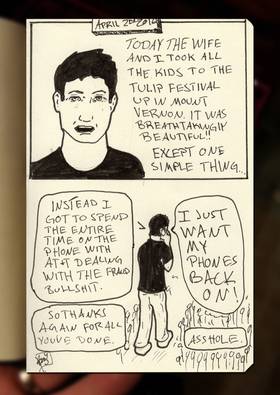 APRIL 2ND 2010
TODAY THE WIFE
AND I TOOK ALL
THE KIDS TO THE
TULIP FESTIVAL
UP IN MOUNT
VERNON. IT WAS
BREATHTAKINGLY
BEAUTIFUL!!
EXCEPT ONE
SIMPLE THING...
INSTEAD I
GOT TO SPEND
THE ENTIRE
TIME ON THE
PHONE WITH
AT&T DEALING
WITH THE FRAUD
BULLSHIT.
SO THANKS
AGAIN FOR ALL
YOU'VE DONE.
I JUST
WANT
MY
PHONES
BACK
ON!
ASSHOLE.